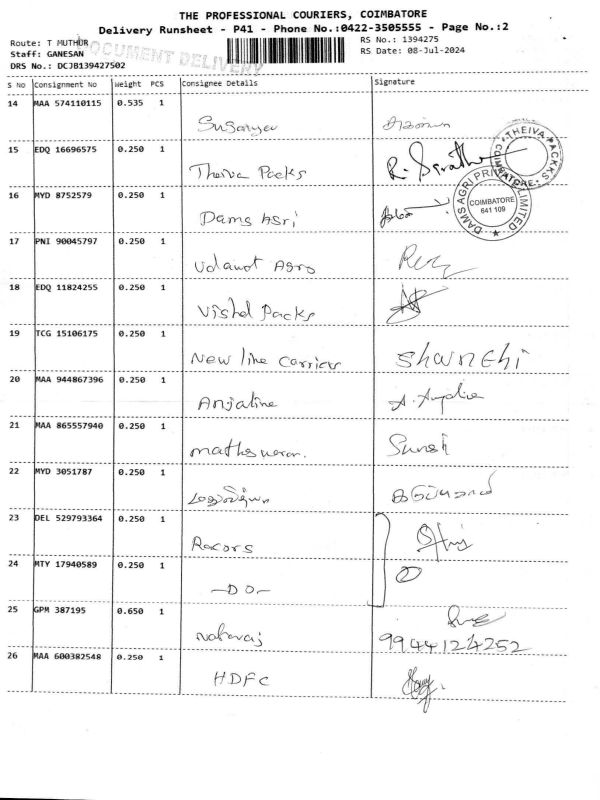 THE PROFESSIONAL COURIERS, COIMBATORE
Delivery Runsheet - P41 - Phone No.:0422-3505555 - Page No.:2
Route: T MUTHUR
RS No.: 1394275
Staff: GANESAN
RS Date: 08-Jul-2024
DRS No.: DCJB139427502
DOCUMENT DELIVERY
S No Consignment No Weight PCS Consignee Details Signature
14 MAA 574110115 0.535 1
15 EDQ 16696575 0.250 1 Theiva Packs
THEIVA PACKS COIMBATORE
16 MYD 8752579 0.250 1 Dams Agri
DAMS AGRI PRIVATE LIMITED
COIMBATORE
641 109
17 PNI 90045797 0.250 1 Udanot Agro
18 EDQ 11824255 0.250 1 Vishal Packs
19 TCG 15106175 0.250 1 New line Carrier
20 MAA 944867396 0.250 1 Anjaline
21 MAA 865557940 0.250 1 matheswaran.
22 MYD 3051787 0.250 1
23 DEL 529793364 0.250 1 Racors
24 MTY 17940589 0.250 1 -DO-
25 GPM 387195 0.650 1
9944124252
26 MAA 600382548 0.250 1 HDFC